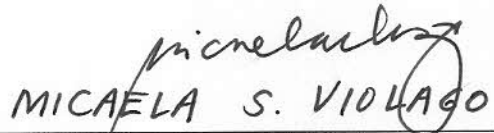 MICAELA S. VIOLAGO